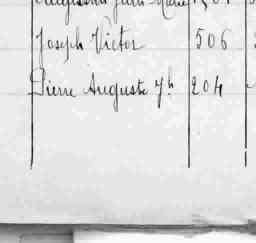 Joseph Victor 506
Pierre Auguste Jh 204